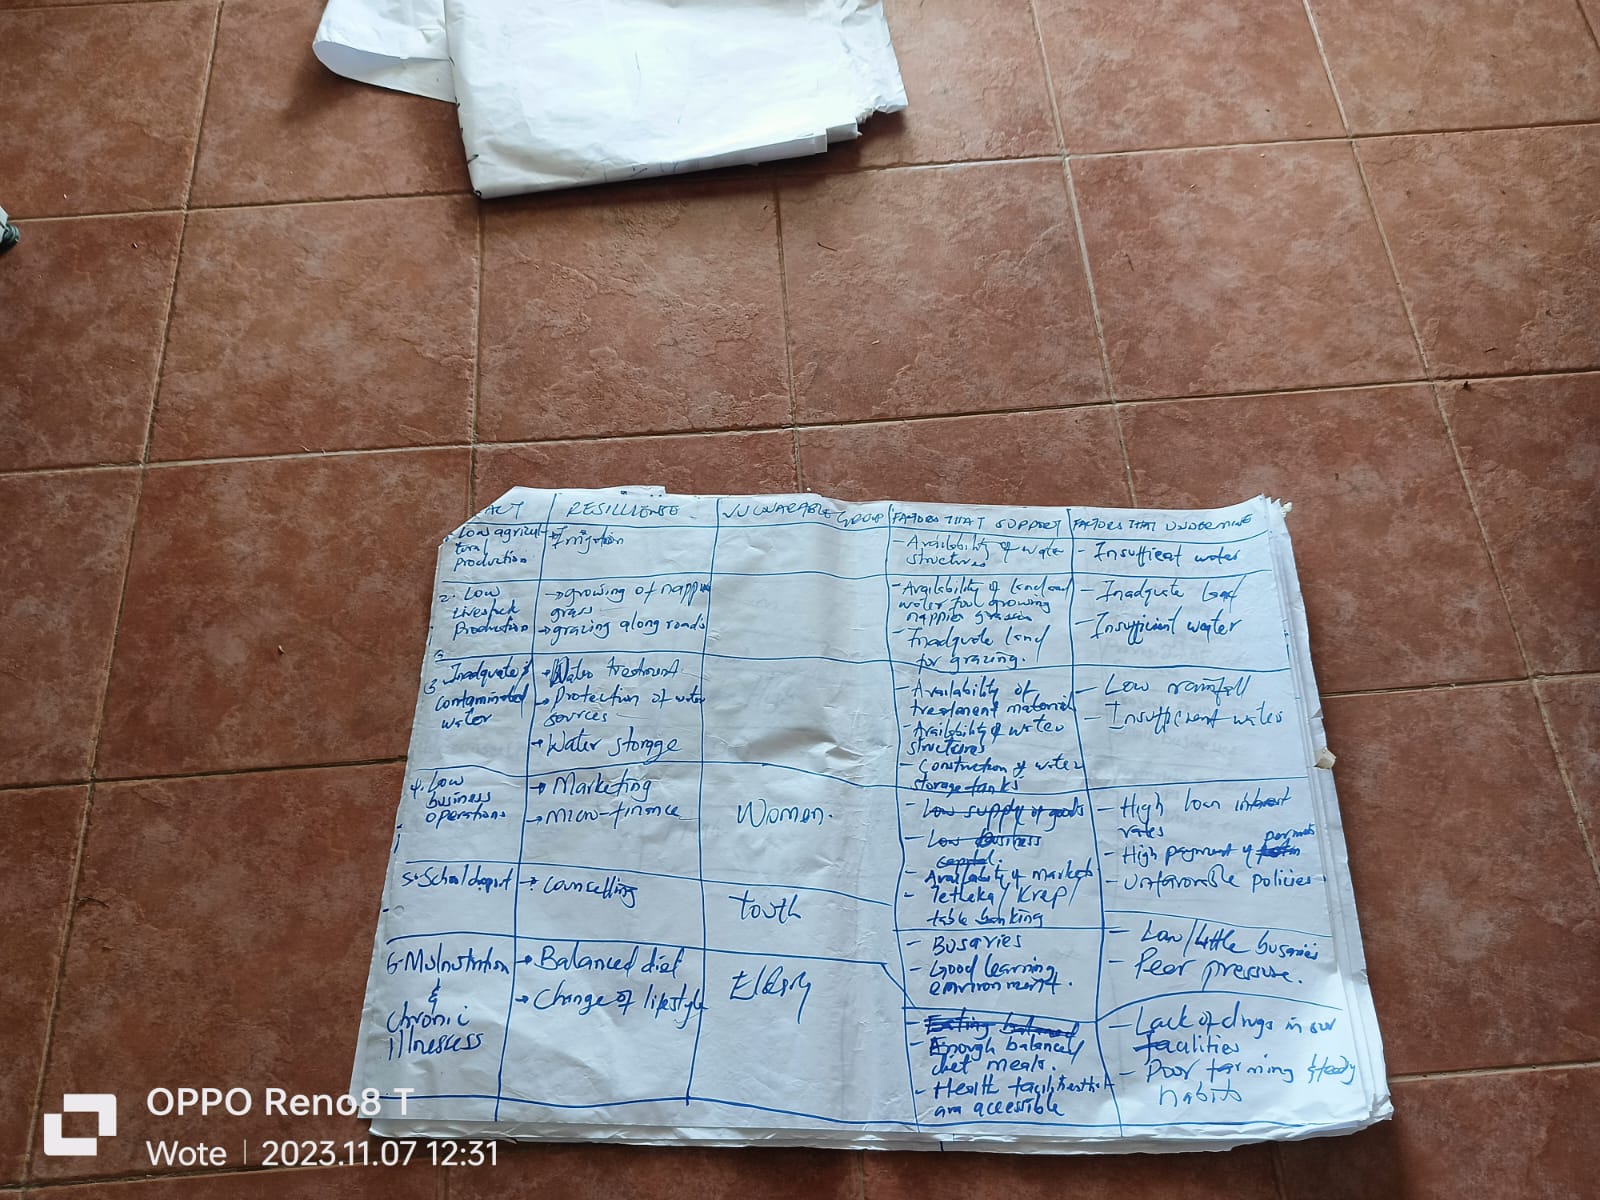 ACT
RESILLIENSE
VULNARABLE GROUP
FACTORS THAT SUPPORT
FACTORS THAT UNDERMINE
Low agricul
ture
production
→ Irrigation
- Availability of water
structures
- Insufficient water
2. Low
Livestock
Production
→ growing of nappier
grass
→ grazing along roads
- Availability of land and
water for growing
nappier grasses
- Inadquate land
for grazing.
- Inadquate land
- Insufficient water
3 Inadquate &
contaminated
water
→ Water treatment
→ Protection of water
sources
→ Water storage
- Availability of
treatment material
- Availability of water
structures
- Construction of water
storage tanks
- Low rainfall
- Insufficient water
4. Low
business
operations
→ Marketing
→ micro-finance
Women.
- Low supply of goods
- Low Business
capital.
- Availability of markets
- Tetheka/Krep/
table banking
- High loan interest
rates
- High payment of permits
- Unfavorable policies
5. School dropout
→ counselling
Youth
- Busaries
- Good learning
environment.
- Low/little busaries
- Peer pressure.
6- Malnutration
&
Chronic
illnesses
→ Balanced diet
→ Change of lifestyle
Elderly
- Eating balanced
- Enough balanced
diet meals.
- Health facilities that
are accessible
- Lack of drugs in our
facilities
- Poor farming
habits
OPPO Reno8 T
Wote | 2023.11.07 12:31